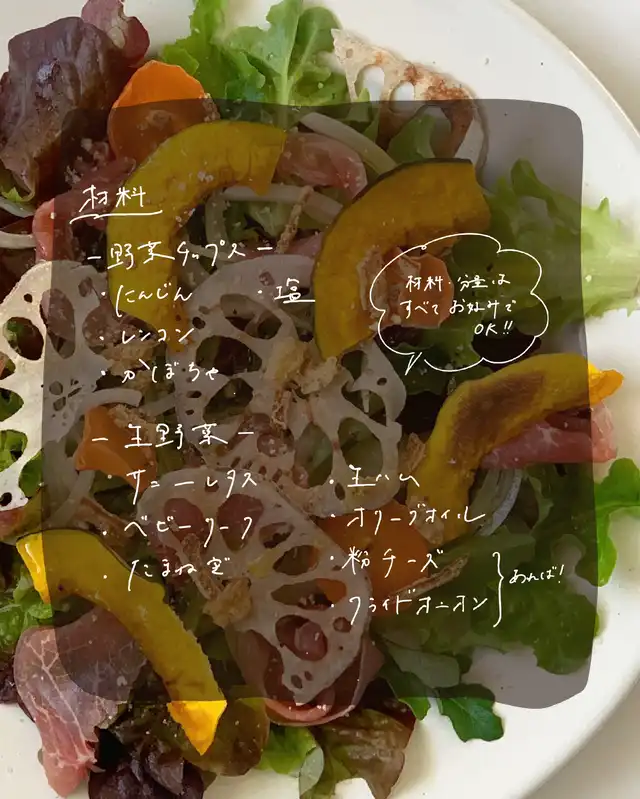 材料
ー野菜チップスー
・にんじん
・レンコン
・かぼちゃ
・塩
材料・分量は
すべてお好みで
OK!!
ー生野菜ー
・サニーレタス
・ベビーリーフ
・たまねぎ
・生ハム
・オリーブオイル
・粉チーズ
・フライドオニオン
あれば!